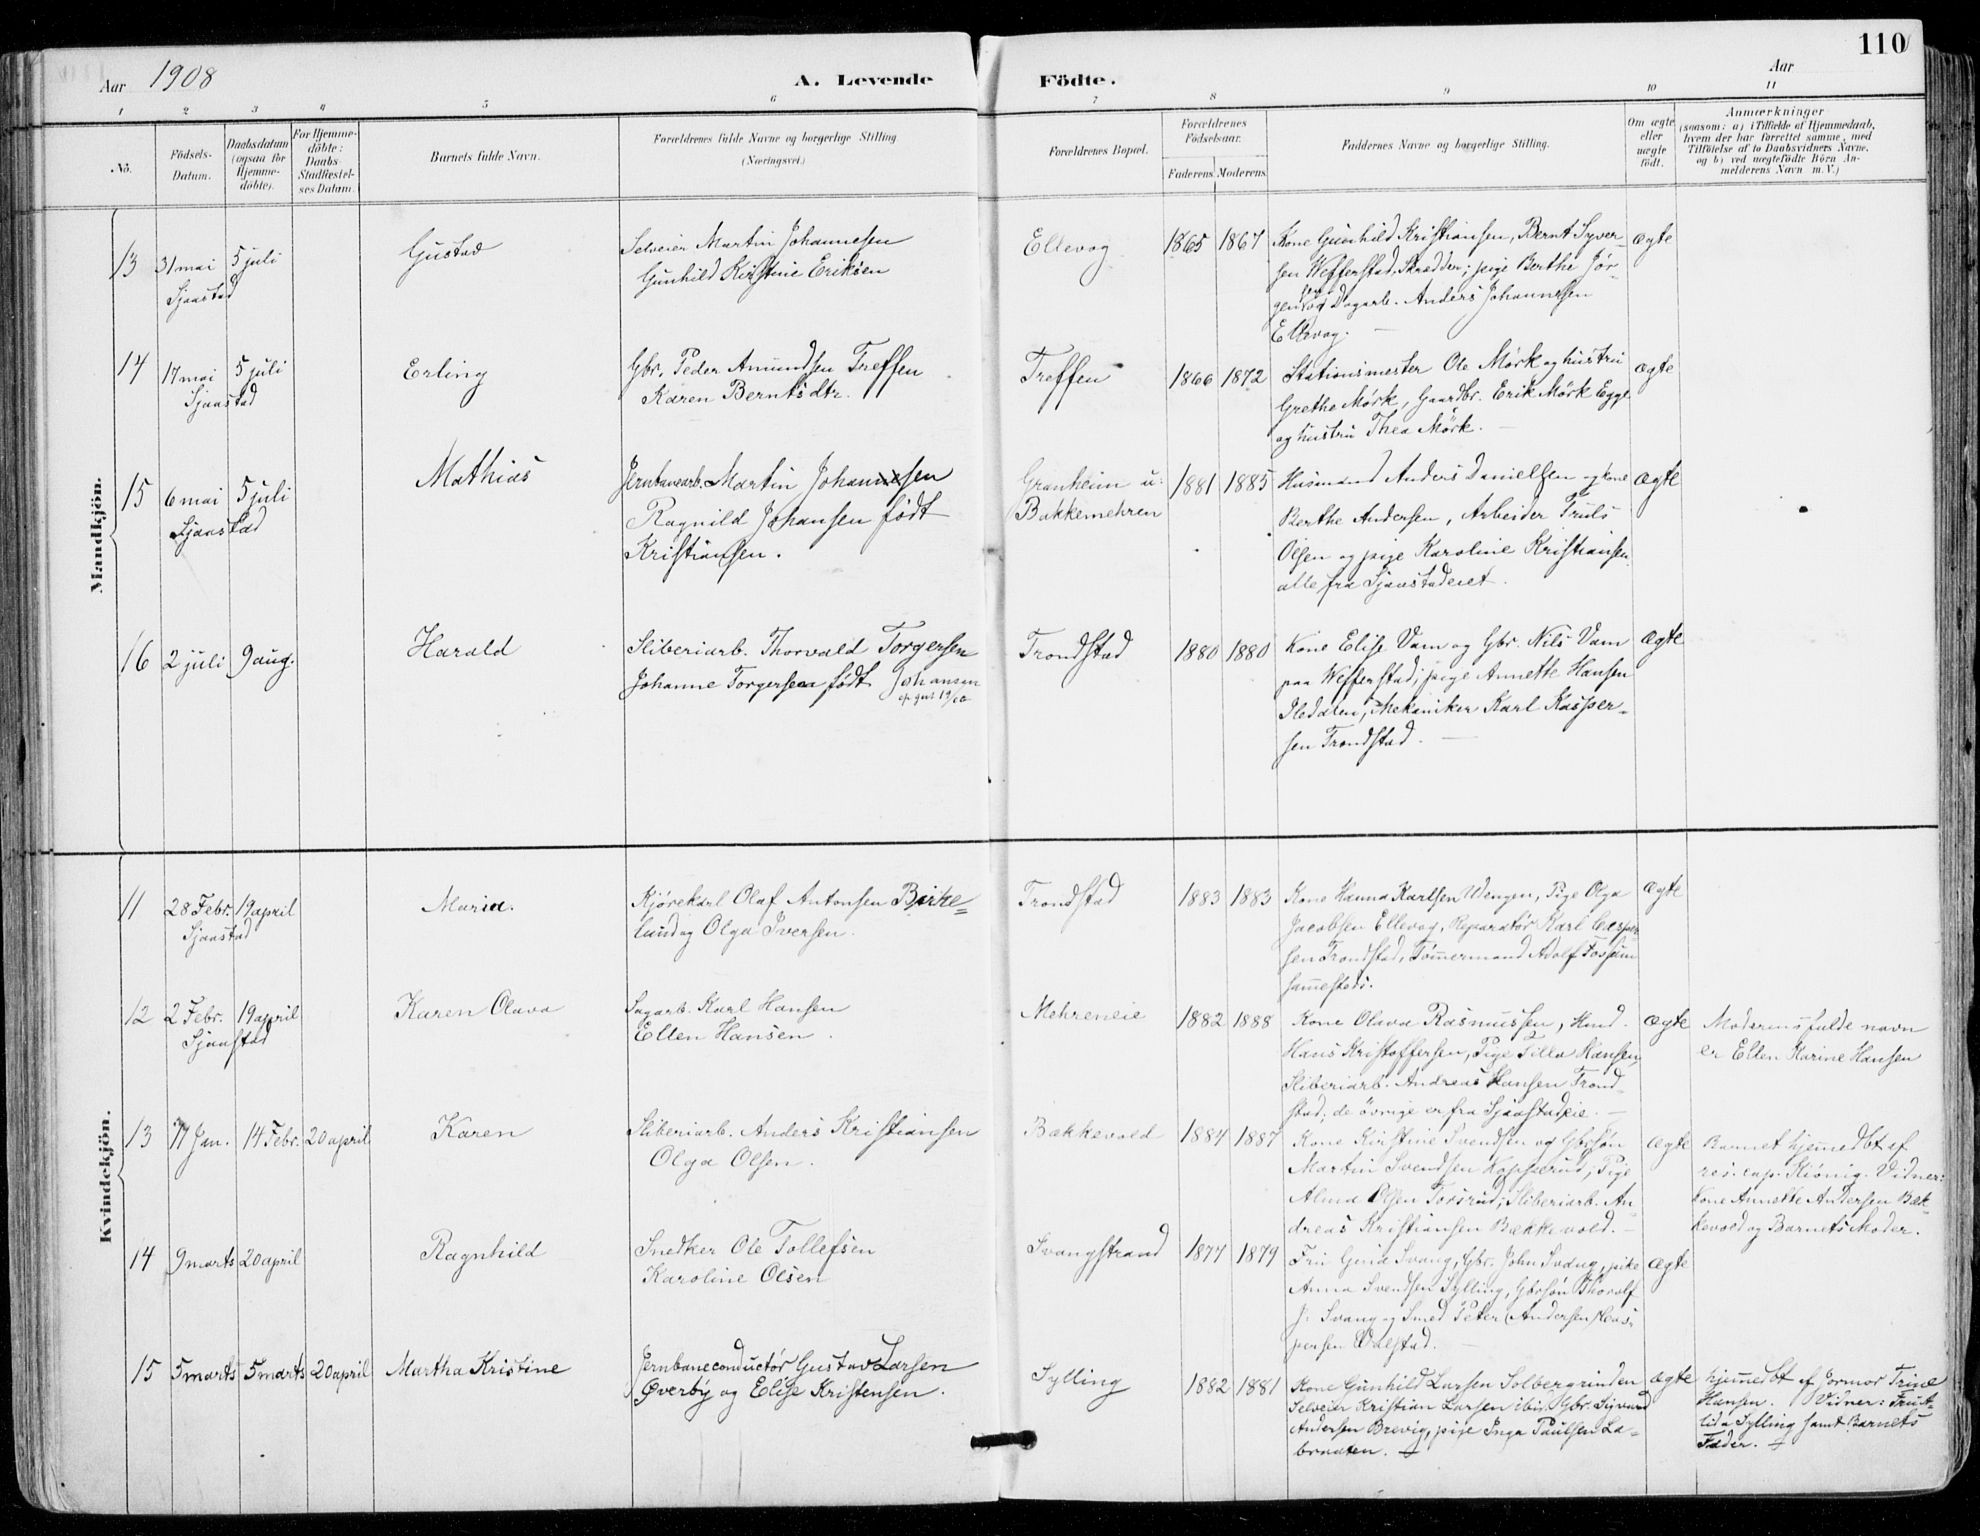 110
Aar 1908
A. Levende Födte.
Aar
1 2 3 4 5 6 7 8 9 10 11
No.
Födsels-Datum.
Daabsdatum (ogsaa for Hjemme-döbte).
For Hjemme-döbte: Daabs-Stadfestel-ses Datum.
Barnets fulde Navn.
Forældrenes fulde Navne og borgerlige Stilling (Næringsvei.)
Forældrenes Bopæl.
Forældrenes Födselsaar.
Faderens. Moderens.
Faddernes Navne og borgerlige Stilling.
Om ægte eller uægte födt.
Anmærkninger
(saasom: a) i Tilfælde af Hjemmedaab,
hvem der har forrettet samme, med
Tilföielse af to Daabsvidners Navne,
og b) ved uægtefödte Börn An-
melderens Navn m. V.)
Mandkjön.
13 31 mai 5 juli Gustav
Sjaastad
Selveier Martin Johannesen
Gunhild Kirstine Eriksen
Ellevog 1865 1867
Kone Gunhild Kristiansen, Bernt Syver-
sen Wefferstad, Skrædder; pige Berthe Jör-
gensen og Dagarb. Anders Johannesen
Ellevog.
ægte
14 17 mai 5 juli Erling
Sjaastad
Gbr. Peder Amundsen Treffen
Karen Berntsdtr.
Treffen 1866 1872
Stationsmester Ole Mörk og hustru
Grethe Mörk, Gaardbr. Erik Mörk Egge
og hustru Thea Mörk.
ægte
15 6 mai 5 juli Mathias
Sjaastad
Jernbanearb. Martin Johannesen
Ragnild Johansen født
Kristiansen.
Granheim u:
Bakkemehren
1881 1885
Husmand Anders Danielsen og kone
Berthe Andersen, Arbeider Truls
Olsen og pige Karoline Kristiansen
alle fra Sjaastadeiet.
ægte
16 2 juli 9 aug. Harald
Sliberiarb. Thorvald Torgersen
Johanne Torgersen født Johansen
Trondstad 1880 1880
Kone Elise Vam og Gbr. Nils Vam
paa Wefferstad; pige Annette Hansen
Mekaniker Karl Kasper-
sen Trondstad.
ægte
Kvindekjön.
11 28 Febr. 19 april Maria.
Sjaastad
Kjörekarl Olaf Antonsen Birke-
lund og Olga Iversen.
Trondstad 1883 1883
Kone Hanna Karlsen Wengen, Pige Olga
Jacobsen Ellevog, Reparatör Karl Casper-
sen Trondstad, Tömmermand Adolf Fossum
sammesteds.
ægte
12 2 Febr. 19 april Karen Olava
Sjaastad
Sagarb. Karl Hansen
Ellen Hansen.
Mehreneie 1882 1888
Kone Olava Rasmussen, Husmd.
Hans Kristoffersen, Pige Tilla Hansen,
Sliberiarb. Andreas Hansen Trond-
stad; de övrige er fra Sjaastadeie.
ægte
Moderens fulde navn
er Ellen Karine Hansen
13 Jan. 14 Febr. 20 april Karen
Sliberiarb. Anders Kristiansen
Olga Olsen.
Bækkevold 1884 1887
Kone Kirstine Svendsen og Gbrsön
Martin Svendsen Kopperud; Pige
Alma Olsen Torsrud; Sliberiarb. An-
dreas Kristiansen Bækkevold.
ægte
Barnet hjemmedbt af
res. cap. Kiönig. Vidner:
Kone Annette Andersen Bæk-
kevold og Barnets Moder.
14 9 marts 20 april Ragnhild
Snedker Ole Tollefsen
Karoline Olsen
Svangstrand 1877 1879
Fru Gina Svang, Gbr. John Svang, pike
Anna Svendsen Sylling, Gbrsön Thorolf
J. Svang og Smed Peter Andersen
Odelstad.
ægte
15 5 marts 5 marts 20 april Martha Kristine
Jernbaneconductör Gustav Larsen
Øverby og Elise Kristensen.
Sylling 1882 1881
Kone Gunhild Larsen Solbergrinden
Selveier Kristian Larsen ibid. Gbr. Sigvard
Andersen Brevig, pige Inga Paulsen La-
braaten.
ægte
hjemmedbt af Jormor Trine
Hansen. Vidner:
Sylling samt Barnets
Fader.